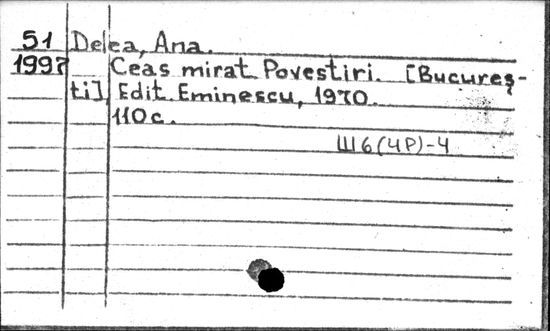 51 Delea, Ana.
1997 Ceas mirat Povestiri. [Bucureş-
ti], Edit. Eminescu, 1970.
110 c.
Ш6(4Р)-4